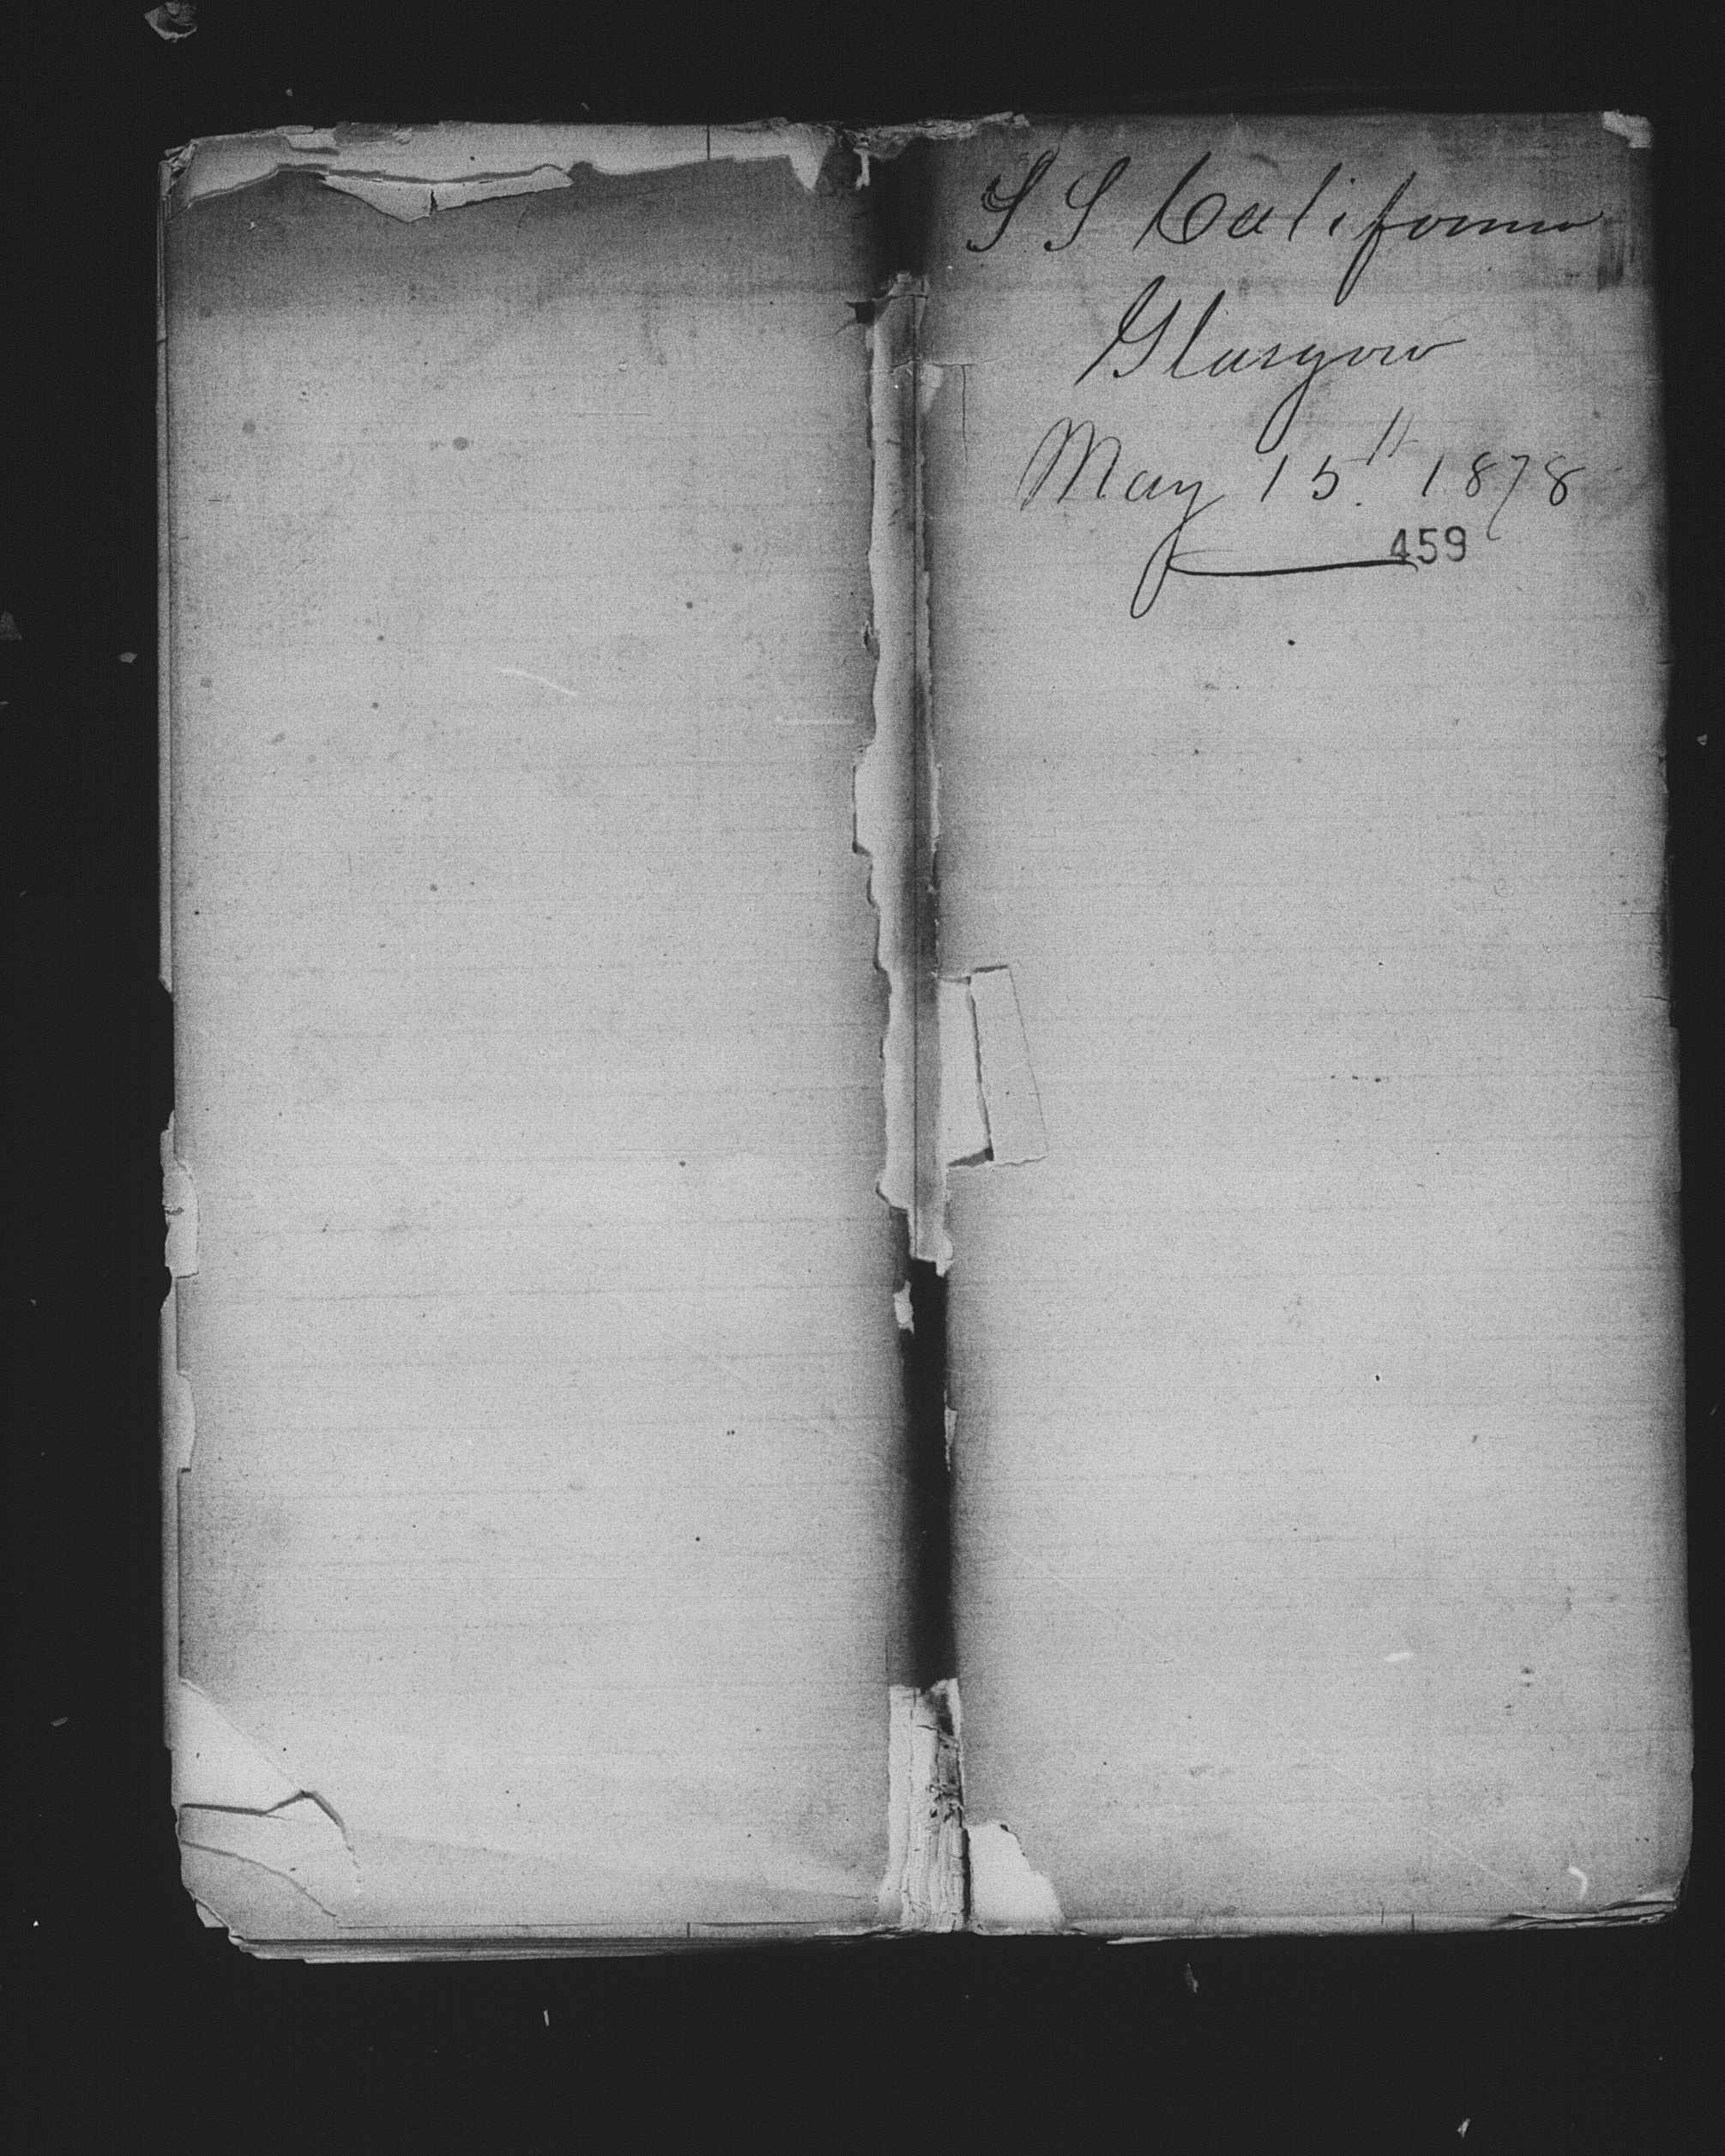 S S California
Glasgow
May 15th 1878
459